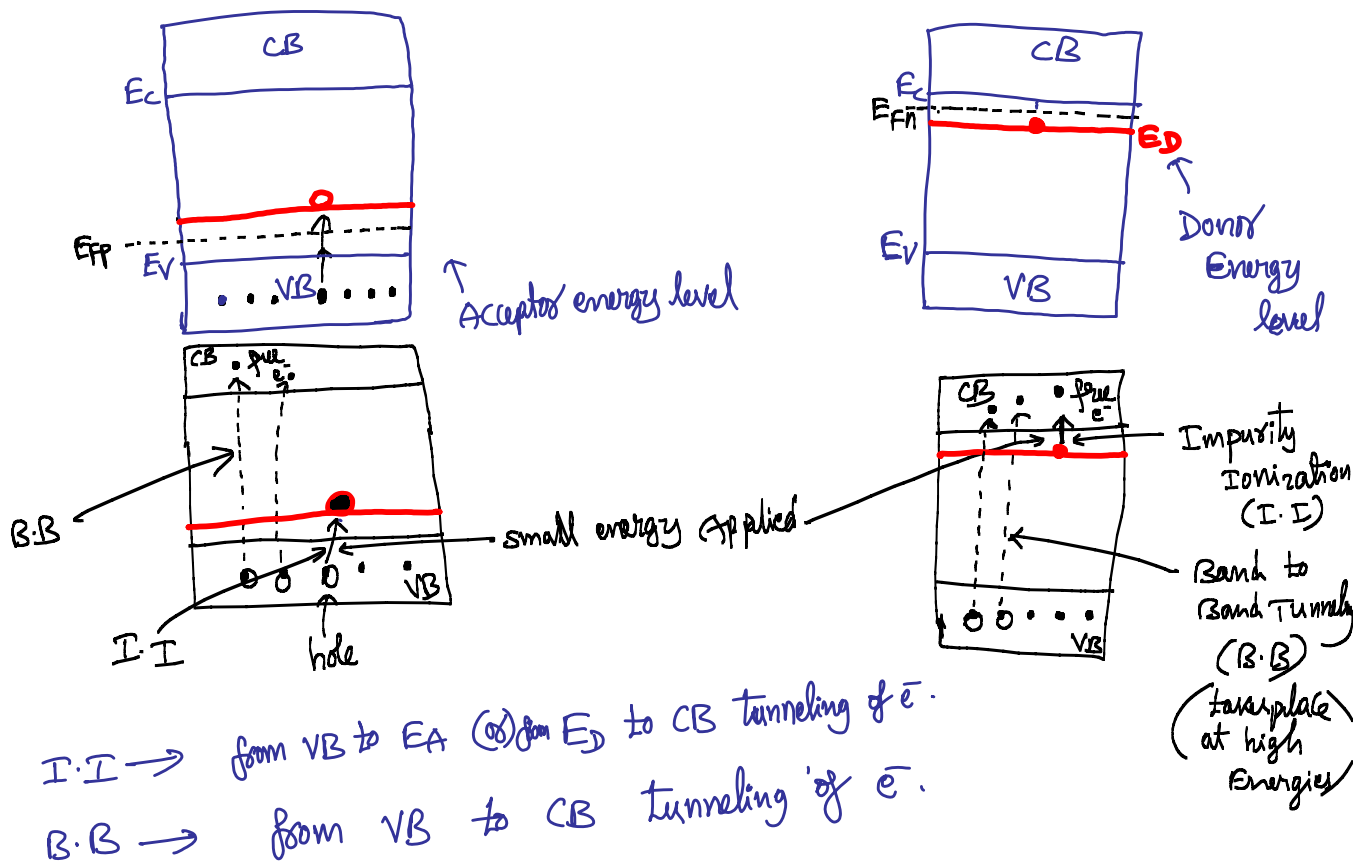 CB
Ec
EFP
Ev
VB
Acceptor energy level
CB
Ec
EFn
ED
Ev
VB
Donor
Energy
level
CB
free
e-
B.B
small energy Applied
VB
I.I
hole
CB
free
e-
Impurity
Ionization
(I.I)
Band to
Band Tunneling
VB
(B.B)
(takes place
at high
Energies)
I.I → from VB to EA (or) from ED to CB tunneling of e-.
B.B → from VB to CB tunneling of e-.